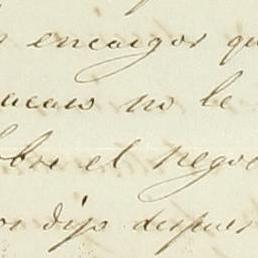 encargos qu
acaso no le
obre el nego
os dijo despues